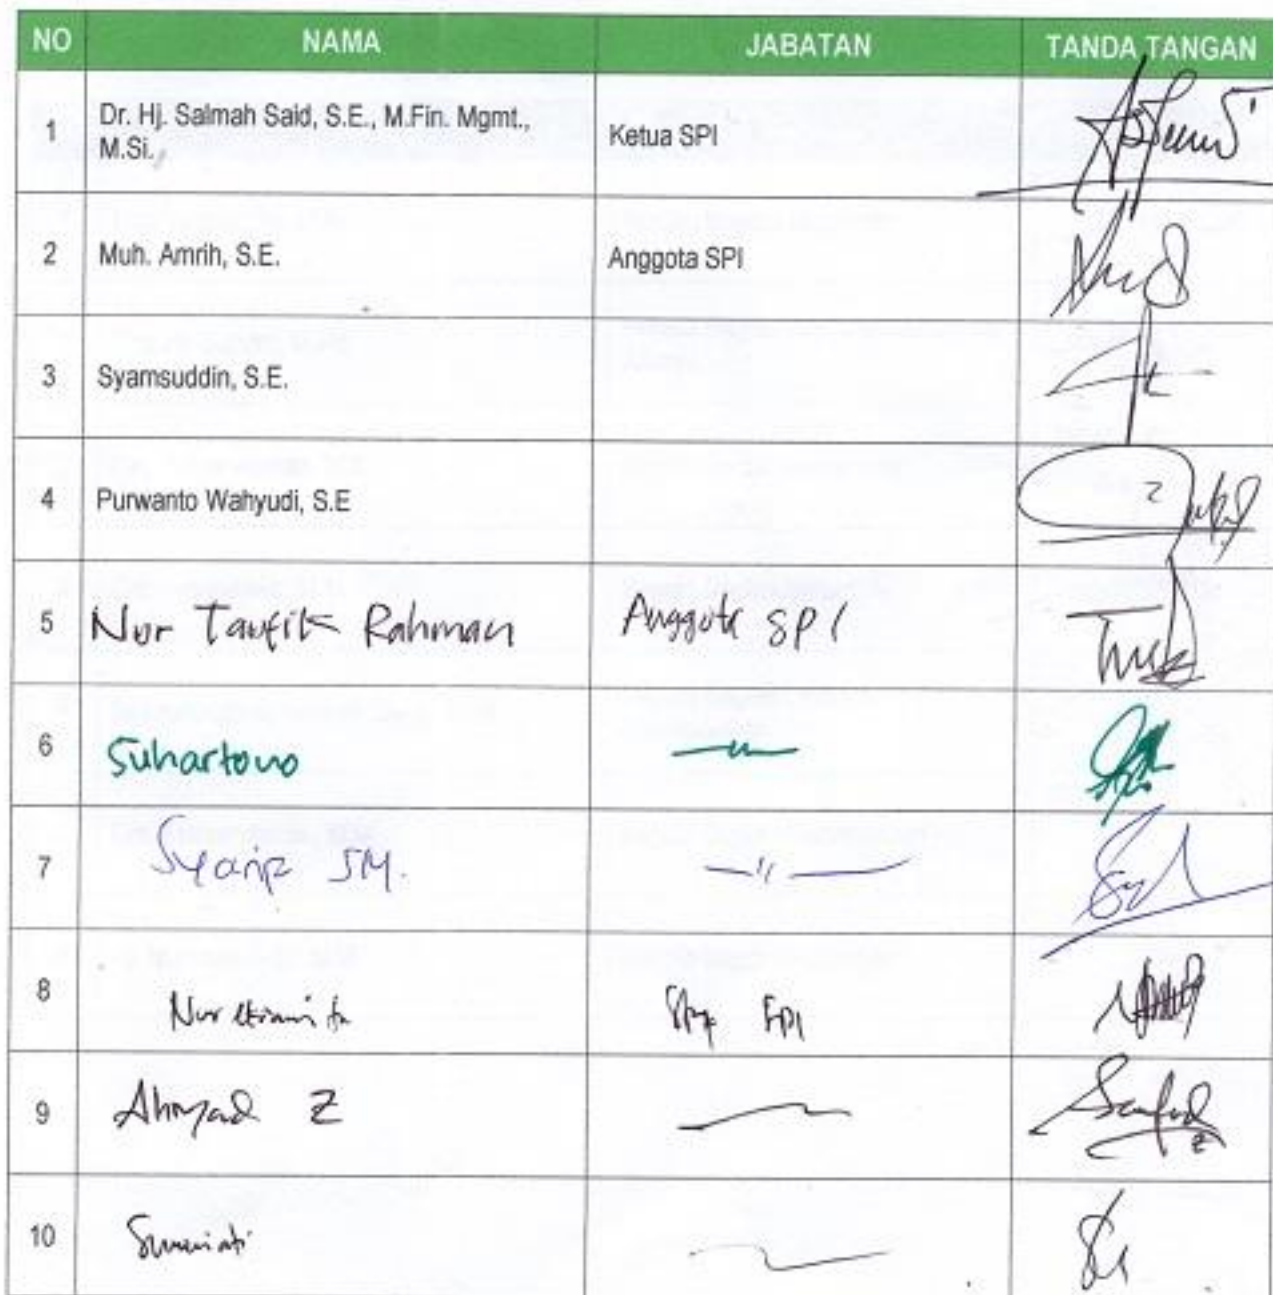 NO NAMA JABATAN TANDA TANGAN
1 Dr. Hj. Salmah Said, S.E., M.Fin. Mgmt., Ketua SPI
M.Si.
2 Muh. Amrih, S.E. Anggota SPI
3 Syamsuddin, S.E.
4 Purwanto Wahyudi, S.E
5 Nur Taufik Rahman Anggota SPI
6 Suhartono
7 Syarif SM.
8 SPI
9 Ahmad Z
10